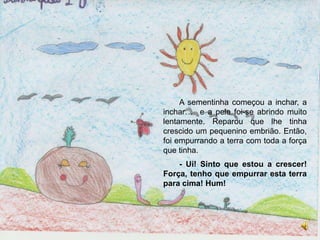 A sementinha começou a inchar, a
inchar... e a pele foi-se abrindo muito
lentamente. Reparou que lhe tinha
crescido um pequenino embrião. Então,
foi empurrando a terra com toda a força
que tinha.
- Ui! Sinto que estou a crescer!
Força, tenho que empurrar esta terra
para cima! Hum!